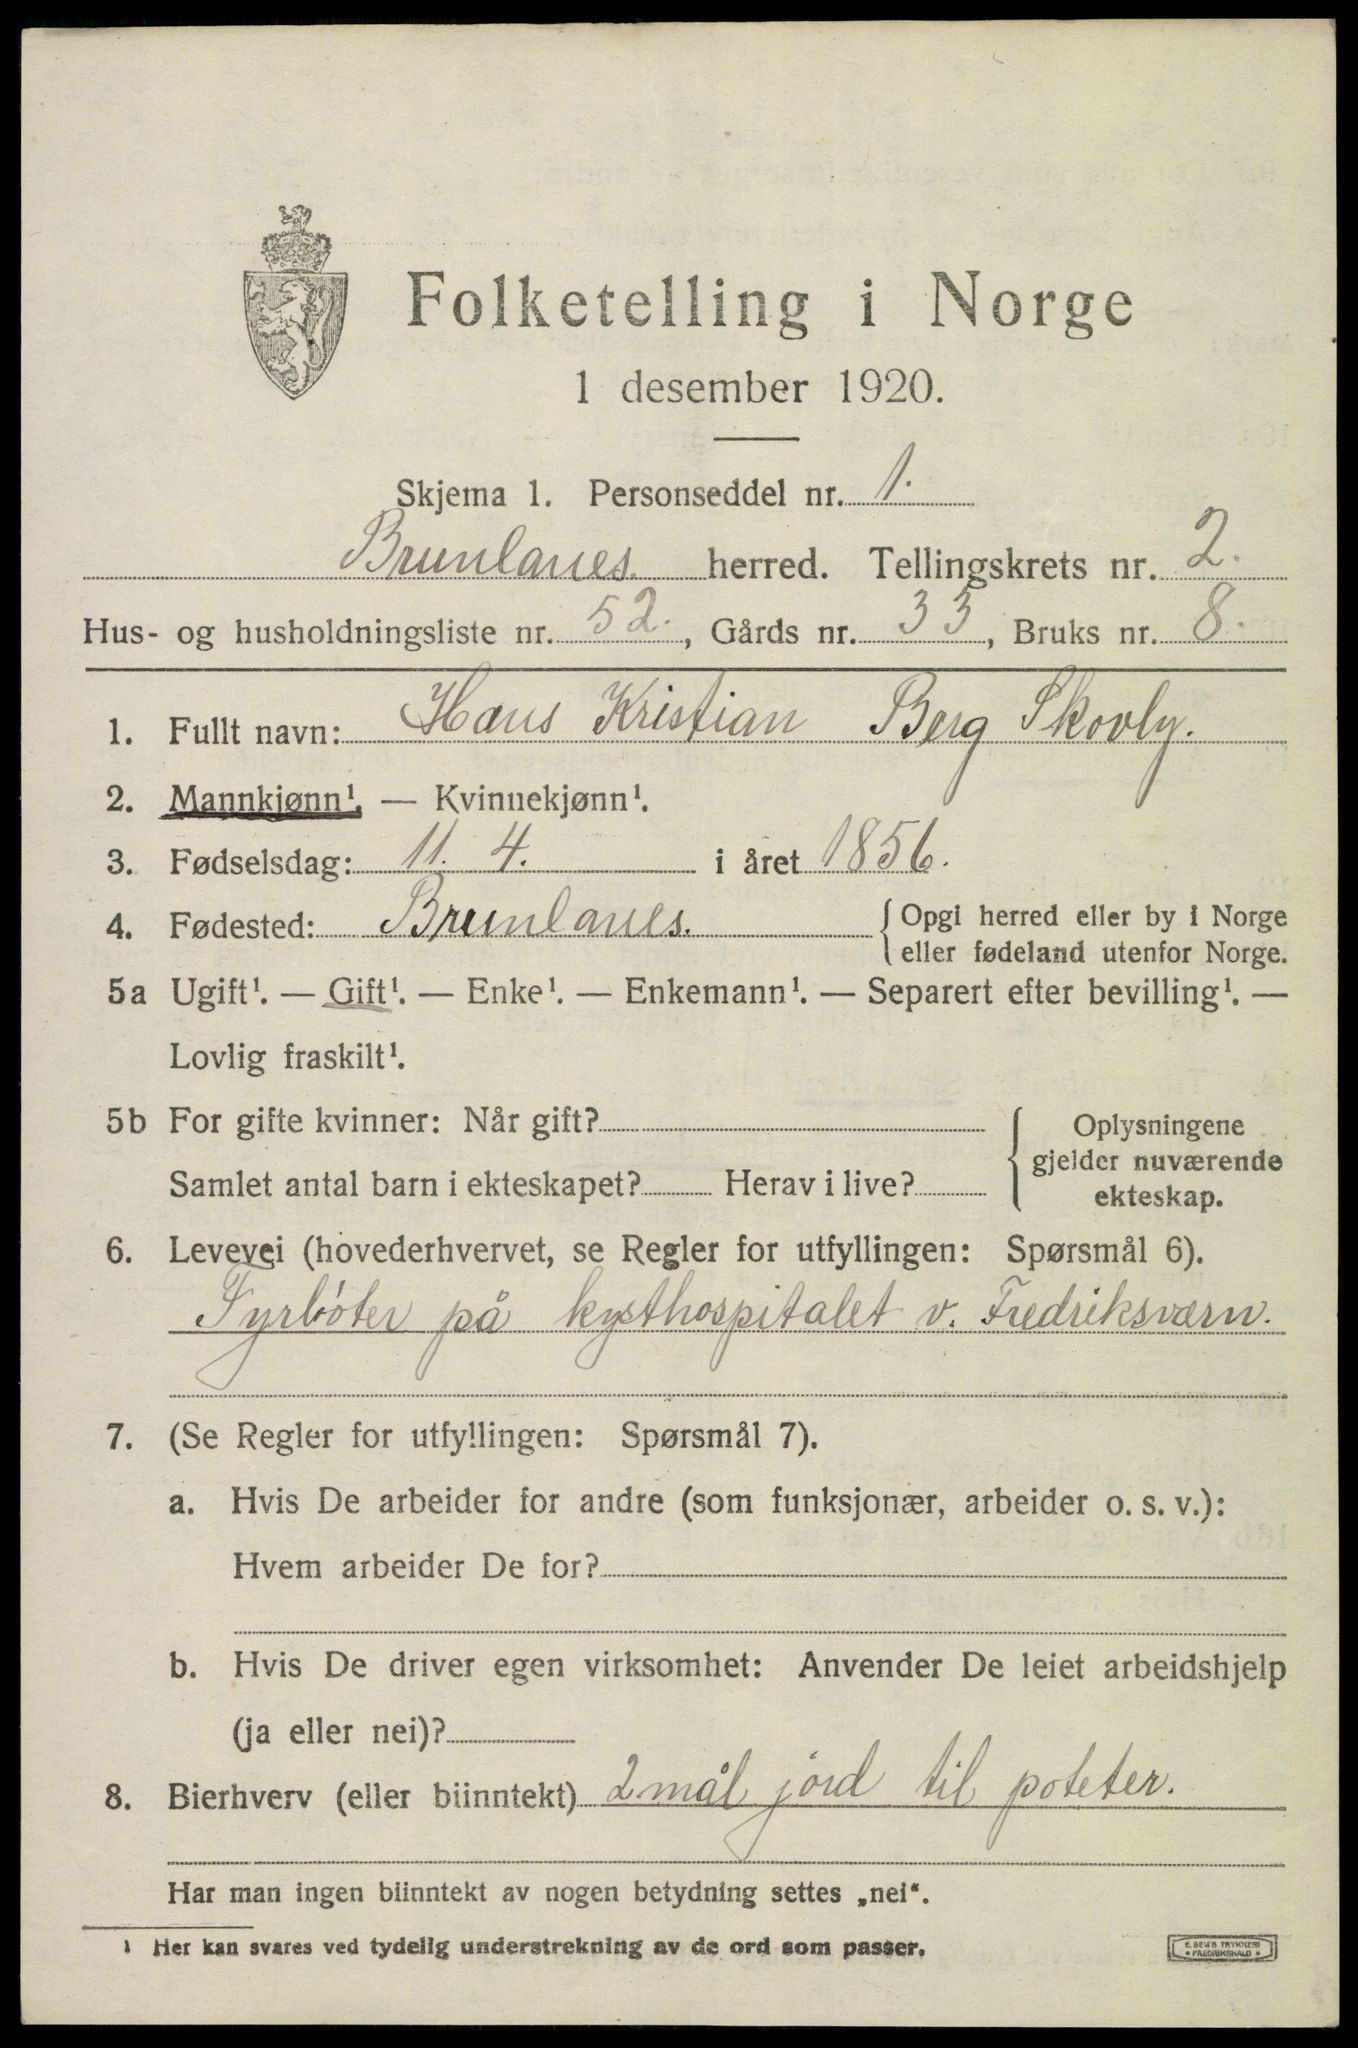 Folketelling i Norge
1 desember 1920.
Skjema 1. Personseddel nr. 1.
Brunlanes. herred. Tellingskrets nr. 2.
Hus- og husholdningsliste nr. 52., Gårds nr. 33, Bruks nr. 8.
1. Fullt navn: Hans Kristian Berg Skovly.
2. Mannkjønn¹. — Kvinnekjønn¹.
3. Fødselsdag: 11. 4. i året 1856.
4. Fødested: Brunlanes. { Opgi herred eller by i Norge
eller fødeland utenfor Norge.
5a Ugift¹. — Gift¹. — Enke¹. — Enkemann¹. — Separert efter bevilling¹. —
Lovlig fraskilt¹.
5b For gifte kvinner: Når gift?
Samlet antal barn i ekteskapet? Herav i live?
Oplysningene
gjelder nuværende
ekteskap.
6. Levevei (hovederhvervet, se Regler for utfyllingen: Spørsmål 6).
Fyrbøter på kysthospitalet v. Fredriksværn.
7. (Se Regler for utfyllingen: Spørsmål 7).
a. Hvis De arbeider for andre (som funksjonær, arbeider o. s. v.):
Hvem arbeider De for?
b. Hvis De driver egen virksomhet: Anvender De leiet arbeidshjelp
(ja eller nei)?
8. Bierhverv (eller biinntekt) 2 mål jord til poteter.
Har man ingen biinntekt av nogen betydning settes „nei“.
¹ Her kan svares ved tydelig understrekning av de ord som passer.
E. SEM'S TRYKKERI
FREDRIKSHALD